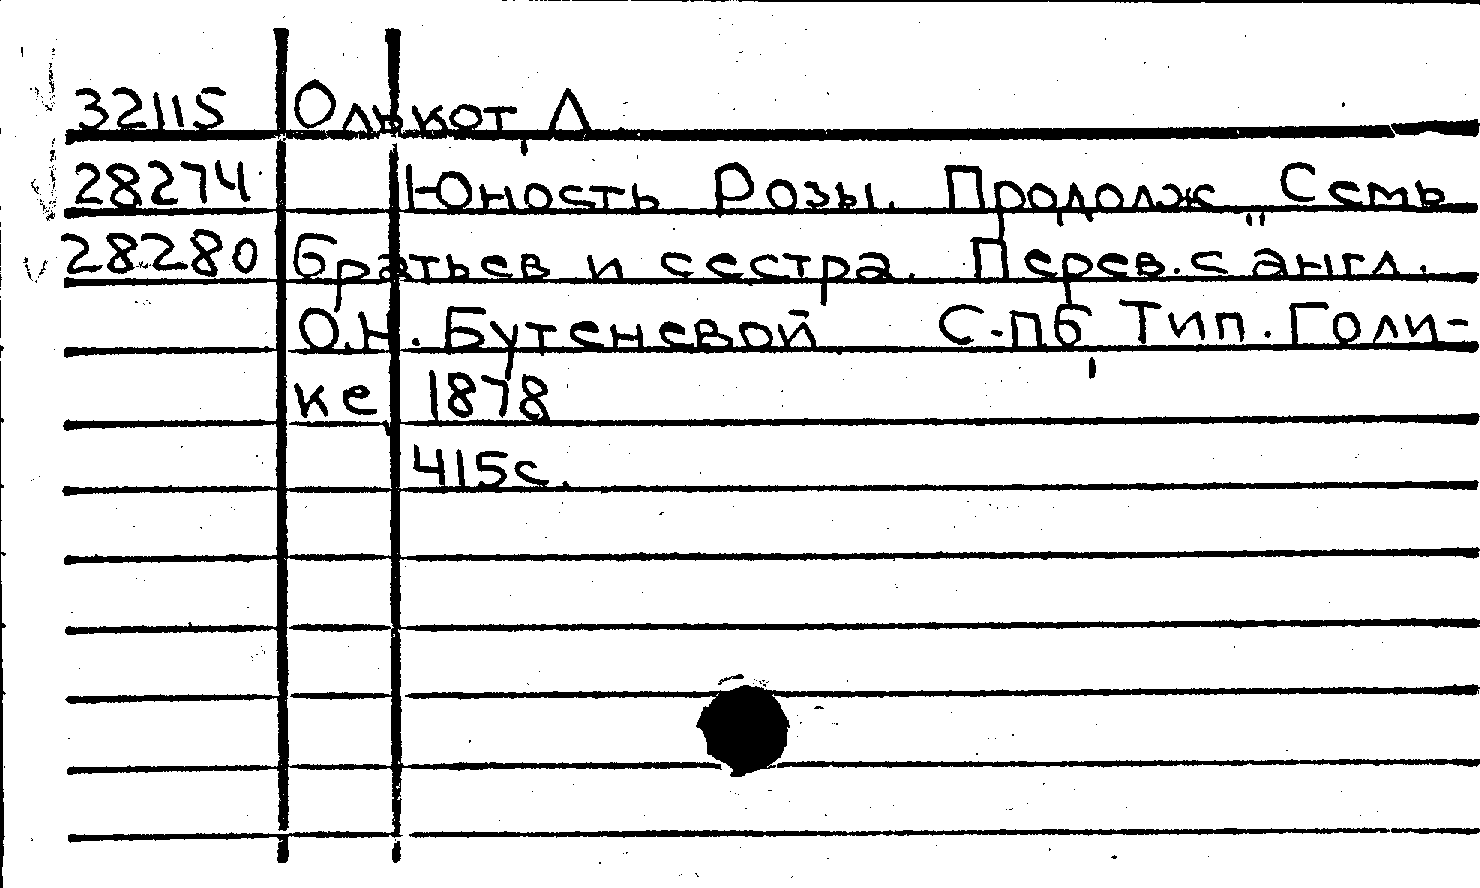 32115 Олькот, Л
28274 Юность Розы. Продолж. "Семь
28280 братьев и сестра. Перев. с англ.
О.Н. Бутеневой С-пб, Тип. Голи-
ке, 1878
415с.